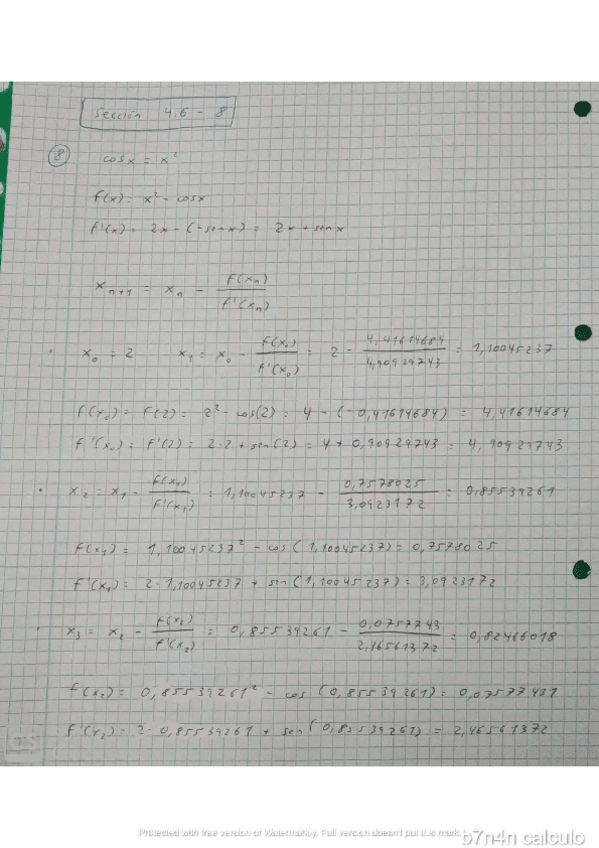 Sección 4.6 - 8
8 cosx = x²
f(x) = x² - cosx
f'(x) = 2x - (-senx) = 2x + senx
xₙ₊₁ = xₙ - f(xₙ) / f'(xₙ)
x₀ = 2 x₁ = x₀ - f(x₀) / f'(x₀) = 2 - 4,41614684 / 4,90929743 = 1,10045237
f(x₀) = f(2) = 2² - cos(2) = 4 - (-0,41614684) = 4,41614684
f'(x₀) = f'(2) = 2·2 + sen(2) = 4 + 0,90929743 = 4,90929743
x₂ = x₁ - f(x₁) / f'(x₁) = 1,10045237 - 0,7578025 / 3,0923172 = 0,85539261
f(x₁) = 1,10045237² - cos(1,10045237) = 0,7578025
f'(x₁) = 2·1,10045237 + sin(1,10045237) = 3,0923172
x₃ = x₂ - f(x₂) / f'(x₂) = 0,85539261 - 0,0757743 / 2,46561372 = 0,82466018
f(x₂) = 0,85539261² - cos(0,85539261) = 0,07577431
f'(x₂) = 2·0,85539261 + sen(0,85539261) = 2,46561372
Protected with free version of Watermarkly. Full version doesn't put this mark.
b7n4n calculo